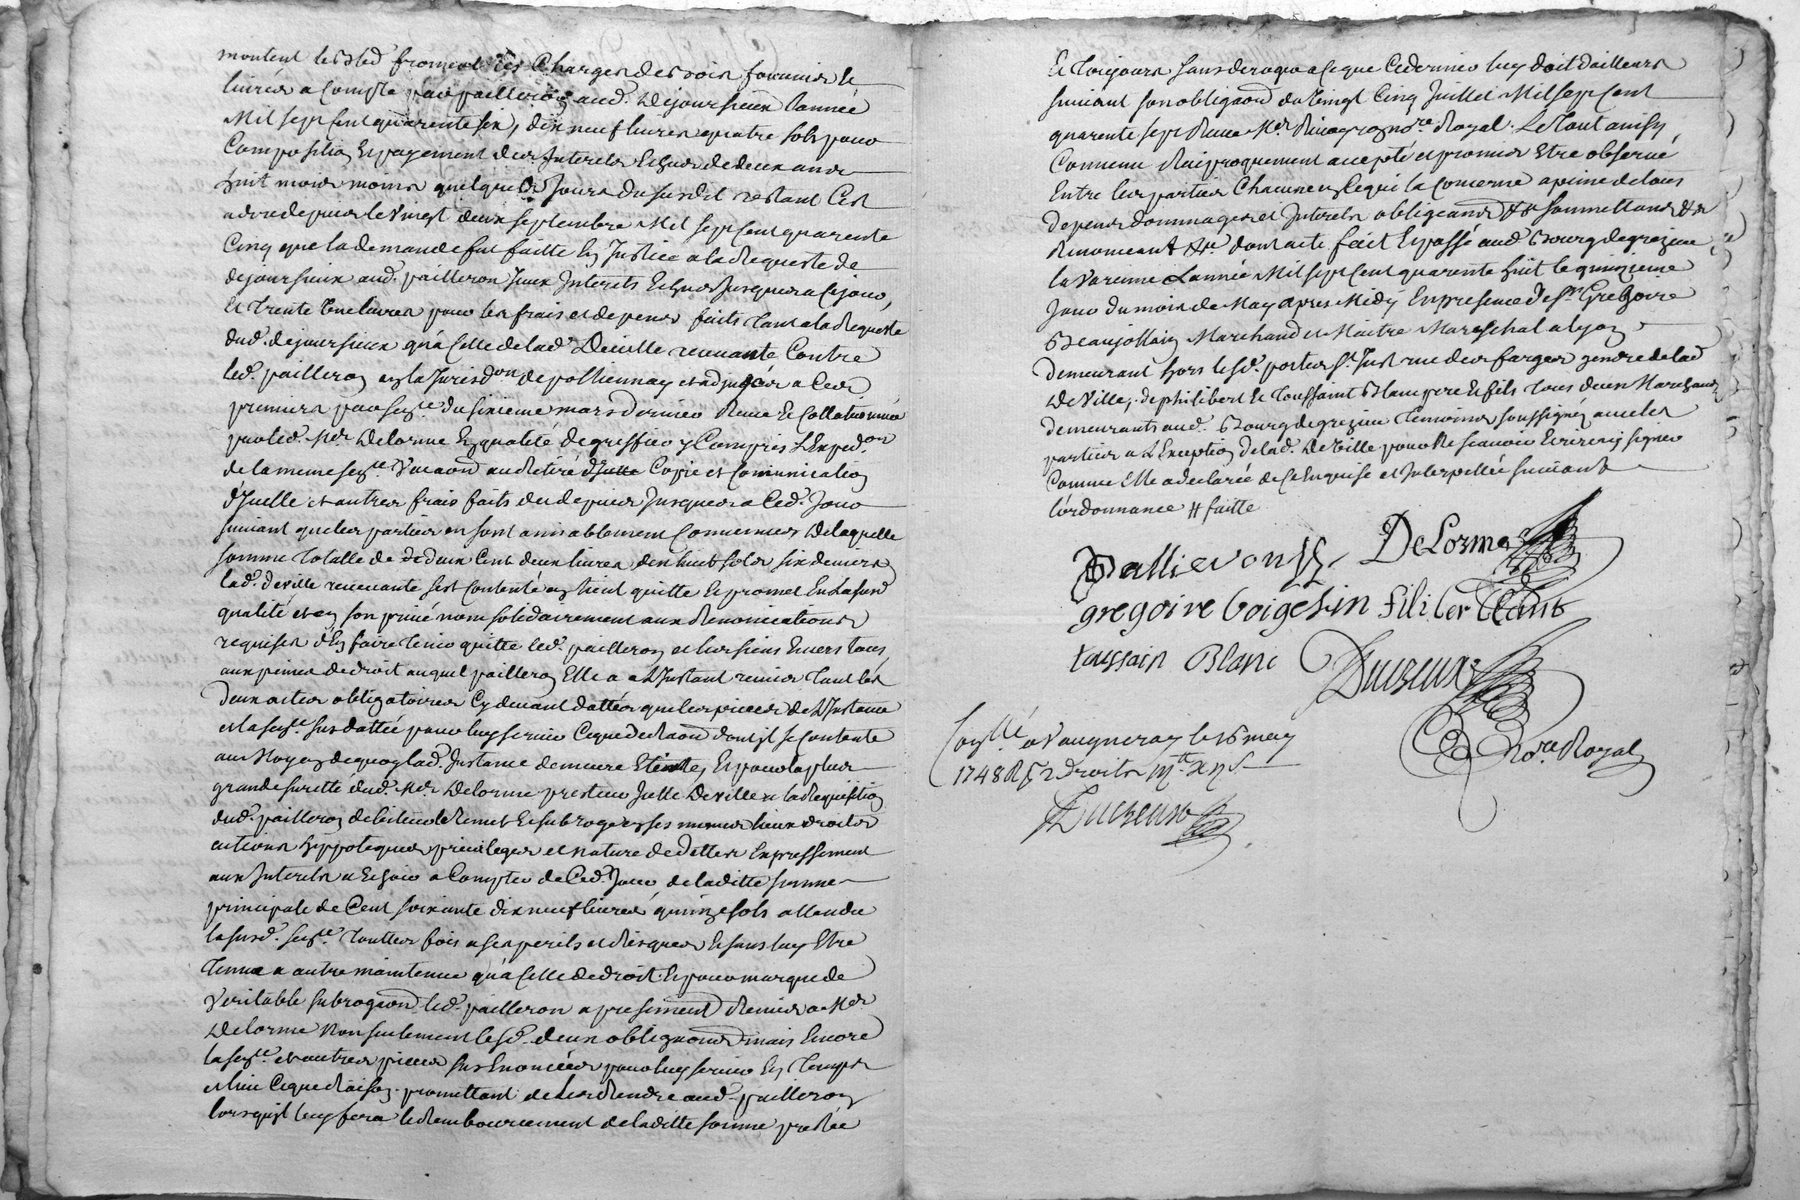 montent le Bled froment les Charges de voir fournier et
livrés a Compte par pailleron aud. Dejoursieux Lannée
Mil sept Cent quarente six, dix neuf livres quatre sols pour
Composition et payement des Interets Echus de deux ans
huit mois moins quelques Jours du susdit restant Cest
adire depuis le Vingt deux septembre Mil sept Cent quarente
Cinq que la demande fut faitte En Justice a la Requeste de
dejoursieux aud. pailleron Iceux Interets Echus Jusques a Cejour,
Et trente Une livres pour les frais et depens faits tant a la Requeste
dud. dejoursieux qu'a Celle de lad. Deville revenante Contre
led. pailleron en la Jurisdon de pollionnay et adjugés a Ces
premiers par Sence du sixieme mars dernier Reçue Et Collationnée
par led. Mer Delorme En qualité de greffier y Compris L'Exped.on
de la meme Sence Vacaon au Retiré d'Icelle Copie et Comunication
d'Icelle et autres frais faits du depuis Jusques a Ced. Jour
suivant que les parties en sont amiablement Convenues De laquelle
somme totalle de deux Cent deux livres dix huit sols six deniers
lad. deville revenante s'est Contentée en tient quitte Et promet En lasusd
qualité et en son privé nom solidairement aux Renonciations
requises d'En faire tenir quitte led. pailleron et les siens Envers tous
aux peines de droit auquel pailleron Elle a a L'Instant remis tant les
deux actes obligatoires Cy devant dattés que les pieces de L'Instance
et la Sence susdattée pour luy servir Ceque de Raon dont il se Contente
au Moyen de quoy lad. Instance demeure Eteinte, Et pour la plus
grande surette dud. Mer Delorme presteur Icelle Deville a la Requisition
dud. pailleron debiteur le Remet Et subroge en ses mêmes lieux droits
actions hyppoteques privileges et nature de dettes Expressement
aux Interets a Echoir a Compter de Ced. Jour de laditte somme
principale de Cent soixante dix neuf livres quinze sols attendu
lasusd. Sence touttes fois a ses perils et Risques Et sans luy Etre
tenue a autre maintenue qu'a Celle de droit. Et pour marque de
Veritable subrogaon led. pailleron a presement Remis a Mer
Delorme Non seulement lesd. deux obligaons mais Encore
la Sence et autres pieces sus Enoncées pour luy servir En temps
et lieu Ceque Raison promettant de les Rendre aud. pailleron
lorsqu'il luy fera le Remboursement de laditte somme prestée
Et toujours sans deroger a Ceque Cedernier luy doit d'ailleurs
suivant son obligaon du Vingt Cinq Juillet Mil sept Cent
quarente sept Reçue Mer no.re Royal. Le tout ainsy
Convenu Reciproquement accepté et promis Etre observé
Entre les parties Chacune en Cequi la Concerne a peine de tous
depens dommages et Interets obligeans &a soumettans &a
Renonceant &a dont acte fait Et passé aud. Bourg de grezieu
la Varenne Lannée Mil sept Cent quarente huit le quinzieme
Jour du mois de May apres Midy En presence de Sr Gregoire
Beaujollin Marchand et Maitre Mareschal a lyon
demeurant hors lesd. portes St. Just rue des farges gendre de lad
De Ville, de philibert Et toussaint Blanc pere Et fils tous deux Marchands
demeurants aud. Bourg de grezieu temoins soussignés avec les
parties a L'Exception de lad. De Ville pour Ne scavoir Ecrire ny signer
Comme Elle a declarée de Ce Enquise et Interpellée suivant
l'ordonnance # faitte
Pallieron DeLorme
gregoire filiber blanc
toussain Blanc Ducreux
No.re Royal
Conllé a Vaugneray le 16 may
1748 R droits
Ducreux